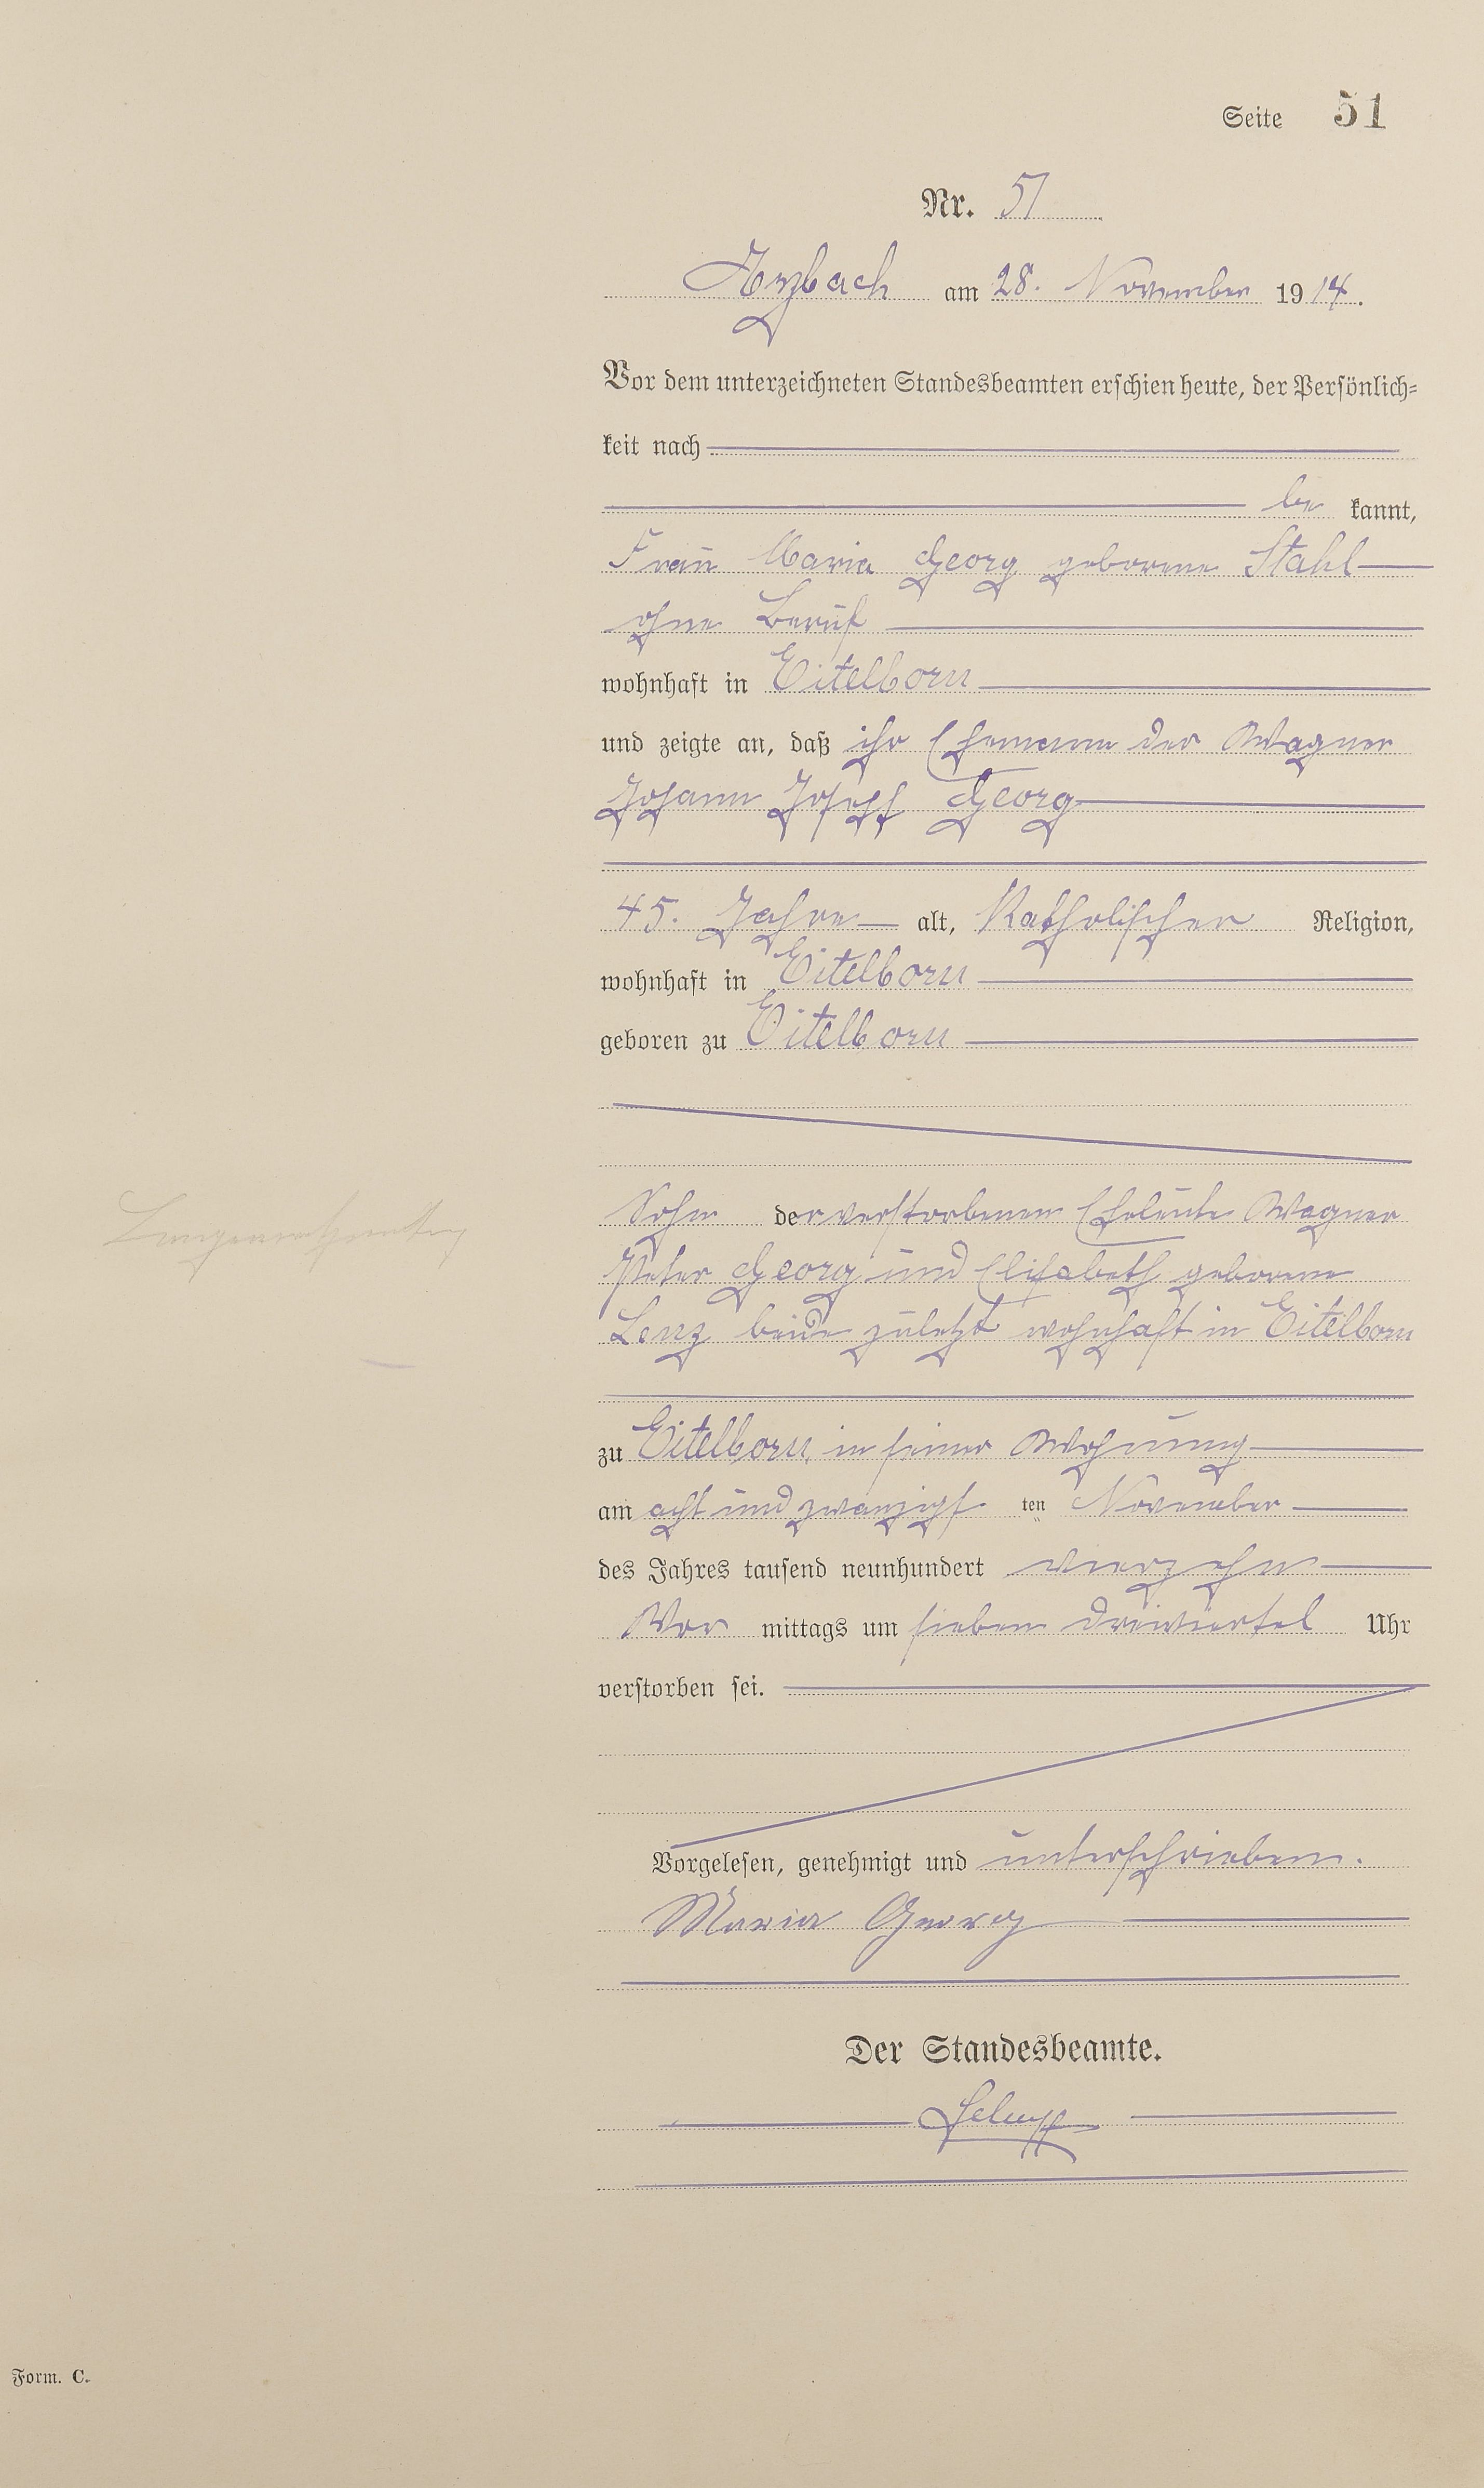 Seite 51
Nr. 51
Arzbach am 28. November 1914.
Vor dem unterzeichneten Standesbeamten erschien heute, der Persönlich-
keit nach
be kannt,
Frau Maria Georg geborene Stahl
ohne Beruf
wohnhaft in Eitelborn
und zeigte an, daß ihr Ehemann der Wagner
Johann Josepf Georg
45. Jahre alt, Katholischer Religion,
wohnhaft in Eitelborn
geboren zu Eitelborn
Sohn der verstorbenen Eheleute Wagner
Lungenentzündung
Peter Georg und Elisabeth geborene
Lenz beide zuletzt wohnhaft in Eitelborn
zu Eitelborn, in seiner Wohnung
am acht und zwanzigsten November
des Jahres tausend neunhundert vierzehn
Vor mittags um sieben dreiviertel Uhr
verstorben sei.
Vorgelesen, genehmigt und unterschrieben.
Maria Georg
Der Standesbeamte.
Form. C.